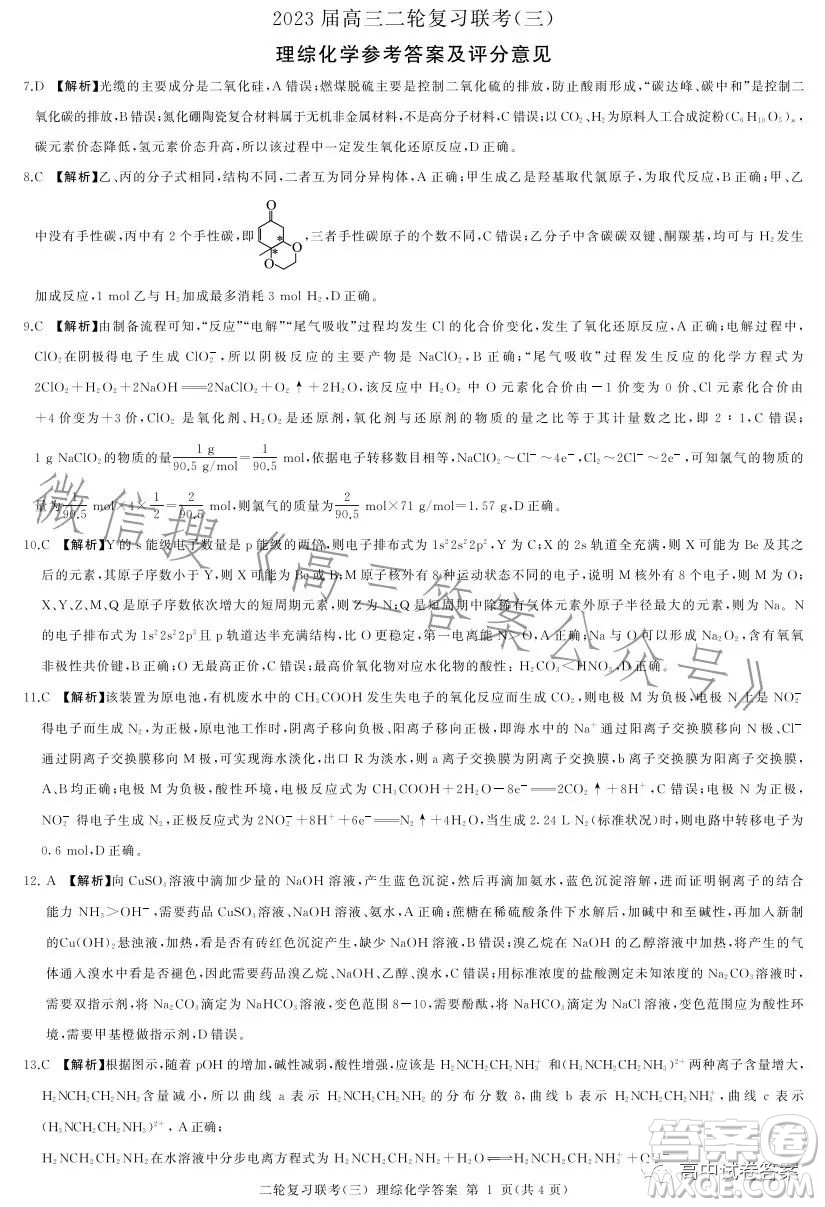 2023 届高三二轮复习联考(三)
理综化学参考答案及评分意见
7.D 【解析】光缆的主要成分是二氧化硅,A 错误;燃煤脱硫主要是控制二氧化硫的排放,防止酸雨形成,“碳达峰、碳中和”是控制二
氧化碳的排放,B 错误;氮化硼陶瓷复合材料属于无机非金属材料,不是高分子材料,C 错误;以 CO₂、H₂为原料人工合成淀粉(C₆H₁₀O₅)ₙ,
碳元素价态降低,氢元素价态升高,所以该过程中一定发生氧化还原反应,D 正确。
8.C 【解析】乙、丙的分子式相同,结构不同,二者互为同分异构体,A 正确;甲生成乙是羟基取代氯原子,为取代反应,B 正确;甲、乙
O
中没有手性碳,丙中有 2 个手性碳,即 * * O O ,三者手性碳原子的个数不同,C 错误;乙分子中含碳碳双键、酮羰基,均可与 H₂发生
加成反应,1 mol 乙与 H₂加成最多消耗 3 mol H₂,D 正确。
9.C 【解析】由制备流程可知,“反应”“电解”“尾气吸收”过程均发生 Cl 的化合价变化,发生了氧化还原反应,A 正确;电解过程中,
ClO₂在阴极得电子生成 ClO₂⁻,所以阴极反应的主要产物是 NaClO₂,B 正确;“尾气吸收”过程发生反应的化学方程式为
2ClO₂+H₂O₂+2NaOH══2NaClO₂+O₂↑+2H₂O,该反应中 H₂O₂ 中 O 元素化合价由−1 价变为 0 价、Cl 元素化合价由
+4 价变为+3 价,ClO₂ 是氧化剂、H₂O₂ 是还原剂,氧化剂与还原剂的物质的量之比等于其计量数之比,即 2∶1,C 错误;
1 g NaClO₂的物质的量 1 g/90.5 g/mol=1/90.5 mol,依据电子转移数目相等,NaClO₂~Cl⁻~4e⁻,Cl₂~2Cl⁻~2e⁻,可知氯气的物质的
量为 1/90.5 mol×4×1/2=2/90.5 mol,则氯气的质量为 2/90.5 mol×71 g/mol=1.57 g,D 正确。
10.C 【解析】Y 的 s 能级电子数量是 p 能级的两倍,则电子排布式为 1s²2s²2p²,Y 为 C;X 的 2s 轨道全充满,则 X 可能为 Be 及其之
后的元素,其原子序数小于 Y,则 X 可能为 Be 或 B;M 原子核外有 8 种运动状态不同的电子,说明 M 核外有 8 个电子,则 M 为 O;
X、Y、Z、M、Q 是原子序数依次增大的短周期元素,则 Z 为 N;Q 是短周期中除稀有气体元素外原子半径最大的元素,则为 Na。N
的电子排布式为 1s²2s²2p³且 p 轨道达半充满结构,比 O 更稳定,第一电离能 N>O,A 正确;Na 与 O 可以形成 Na₂O₂,含有氧氧
非极性共价键,B 正确;O 无最高正价,C 错误;最高价氧化物对应水化物的酸性:H₂CO₃<HNO₃,D 正确。
11.C 【解析】该装置为原电池,有机废水中的 CH₃COOH 发生失电子的氧化反应而生成 CO₂,则电极 M 为负极,电极 N 上是 NO₂⁻
得电子而生成 N₂,为正极,原电池工作时,阴离子移向负极、阳离子移向正极,即海水中的 Na⁺通过阳离子交换膜移向 N 极、Cl⁻
通过阴离子交换膜移向 M 极,可实现海水淡化,出口 R 为淡水,则 a 离子交换膜为阴离子交换膜,b 离子交换膜为阳离子交换膜,
A、B 均正确;电极 M 为负极,酸性环境,电极反应方式为 CH₃COOH+2H₂O−8e⁻══2CO₂↑+8H⁺,C 错误;电极 N 为正极,
NO₂⁻ 得电子生成 N₂,正极反应为 2NO₂⁻+8H⁺+6e⁻══N₂↑+4H₂O,当生成 2.24 L N₂(标准状况)时,则电路中转移电子为
0.6 mol,D 正确。
12. A 【解析】向 CuSO₄溶液中滴加少量的 NaOH 溶液,产生蓝色沉淀,然后再滴加氨水,蓝色沉淀溶解,进而证明铜离子的结合
能力 NH₃>OH⁻,需要药品 CuSO₄溶液、NaOH 溶液、氨水,A 正确;蔗糖在稀硫酸条件下水解后,加碱中和至碱性,再加入新制
的Cu(OH)₂悬浊液,加热,看是否有砖红色沉淀产生,缺少 NaOH 溶液,B 错误;溴乙烷在 NaOH 的乙醇溶液中加热,将产生的气
体通入溴水中看是否褪色,因此需要药品溴乙烷、NaOH、乙醇、溴水,C 错误;用标准浓度的盐酸测定未知浓度的 Na₂CO₃溶液时,
需要双指示剂,将 Na₂CO₃滴定为 NaHCO₃溶液,变色范围 8−10,需要酚酞,将 NaHCO₃滴定为 NaCl 溶液,变色范围为酸性环
境,需要甲基橙做指示剂,D 错误。
13.C 【解析】根据图示,随着 pOH 的增加,碱性减弱,酸性增强,应该是 H₂NCH₂CH₂NH₃⁺ 和(H₃NCH₂CH₂NH₃)²⁺两种离子含量增大,
H₂NCH₂CH₂NH₂含量减小,所以曲线 a 表示 H₂NCH₂CH₂NH₂ 的分布分数 δ,曲线 b 表示 H₂NCH₂CH₂NH₃⁺,曲线 c 表示
(H₃NCH₂CH₂NH₃)²⁺,A 正确;
H₂NCH₂CH₂NH₂在水溶液中分步电离方程式为 H₂NCH₂CH₂NH₂+H₂O⇌H₂NCH₂CH₂NH₃⁺+
二轮复习联考(三) 理综化学答案 第 1 页(共 4 页)
微信搜《高三答案公众号》
答案圈
高中试卷答案
MXQE.COM